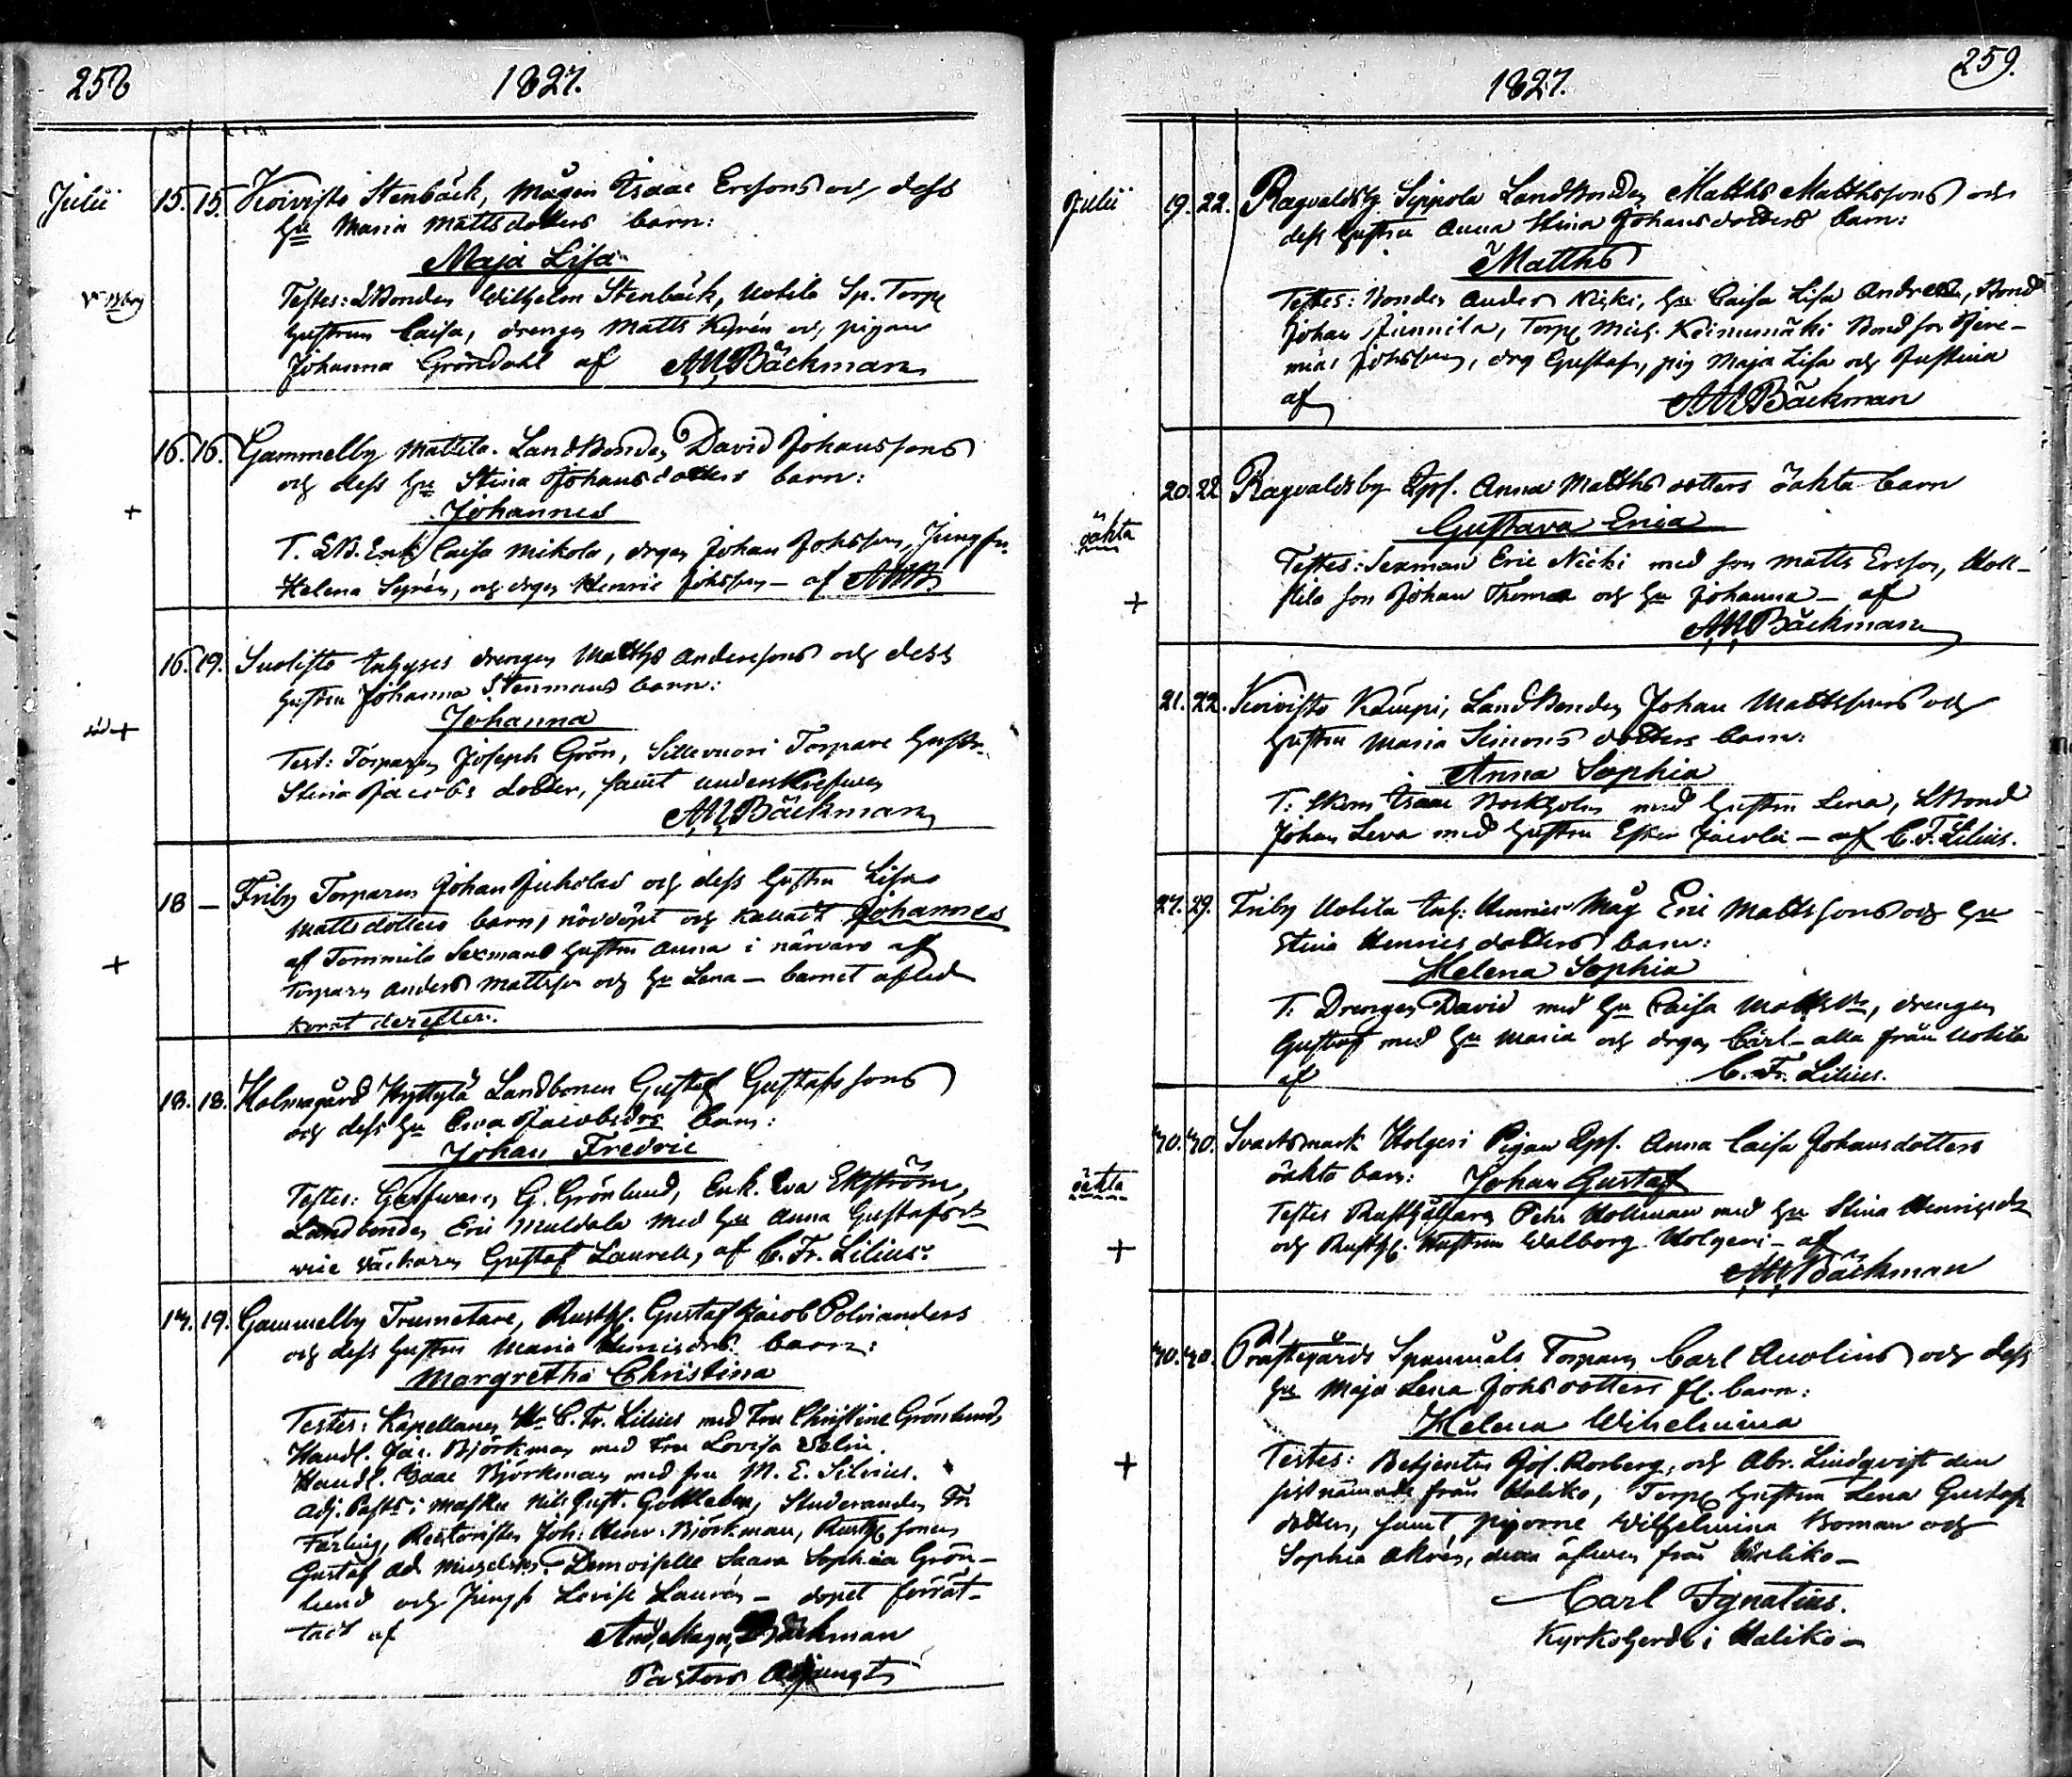 258
1827.
Julii
15. 15. Koivisto Stenbäck, Mågen Isaac Erssons och dess
Hu Maria Mattsdotters barn:
Maja Lisa
Testes: LBonden Wilhelm Stenbäck, Uotila Sp. Torp
hustrun Caisa, drengen Matts Kyrén och pigan
Johanna Gröndahl af AMBäckman
16. 16. Gammelby Mattila. LandBonden David Johanssons
och dess hu Stina Johansdotters barn:
Johannes
T. LB. Enk. Caisa Mikola, drgen Johan Johsson, Jungfr.
Helena Syrén, och drgen Henric Johsson – af AMB
16. 19. Suolisto Inhyses drengen Matths Anderssons och dess
hustru Johanna Stenmans barn:
död +
Johanna
Test: Torparen Joseph Grön, Sillevuori Torpare hustr.
Stina Jacobs dotter, samt underskrefven
AMBäckman
18 – Friby Torparen Johan Juholas och dess hustru Lisa
Mattsdotters barn, nöddöpt och kalladt Johannes
af Tommila Sexmans hustru Anna i närvaro af
Torparen Anders Mattsson och hu Lena – barnet afled
kort derefter.
18. 18. Holmagård Kyttylä Landbonen Gustaf Gustafssons
och dess hu Eva Jacobsdrs barn:
Johan Fredric
Testes: Garfvaren G. Grönlund, Enk. Eva Ekström,
Landbonden Eric Muldala med hu Anna Gustafsdr
Gustaf Laurell, af C. Fr. Lilius.
19. Gammelby Trumetare, Rusth. Gustaf Jacob Polvianders
och dess hustru Maria Henricsdrs barn:
Margretha Christina
Testes: Kapellanen Hr C. Fr. Lilius med Fru Christine Grönlund,
Handl. Jac. Björkman med Fru Lovisa Salin.
Handl. Isaac Björkman med fru M. E. Silvius.
Adj. Past: i Masku Nils Gust. Gottleben, Studeranden Fr
Färling, Joh: Henr: Björkman, Rusth sonen
Gustaf Ad. Demoiselle Saara Sophia Grön-
lund och Jungfr Lovisa Laurén – dopet förrät-
tadt af And. Magn. Bäckman
Pastors Adjungt
259.
1827.
Julii
19. 22. Ragvaldsby Sippola LandBonden Matths Matthssons och
dess hustru Anna Stina Johansdotters barn:
Matths
Testes: Bonden Anders Nicki, hu Caisa Lisa Andersdr, Bond
Johan Junnila, Torp Mich. Keinumäki Bond son Jere-
mias Johsson, drg Gustaf, pig Maja Lisa och Justina
af AMBäckman
20. 22 Ragvaldsby Qpf. Anna Matths dotters oäkta barn
oäkta
Gustava Erica
Testes: Sexman Eric Nicki med son Matts Ersson,
son Johan Thomas och hu Johanna – af
AMBäckman
21. 22. Koivisto Kämpi, LandBonden Johan Mattssons och
hustru Maria Simons dotters barn:
Anna Sophia
T: Skom Isaac Bockholm med hustru Lena, LBond
Johan Leva med hustru Ester Jacobi – af C. F. Lilius.
27. 29. Friby Uotila Inh: Henrics Måg Eric Mattssons och hu
Stina Henrics dotters barn:
Helena Sophia
T. Drengen David med hu Caisa Mattsdr, drengen
Gustaf med hu Maria och drgen Carl – alla från Uotila
af C. Fr. Lilius.
30. 30. Svartsmark Holgeri Pigan Qpf. Anna Caisa Johansdotters
oäkta
oäkta barn: Johan Gustaf
Testes Rusthållaren Petr Hollman med hu Stina Henricsdr
och Rusth. Hustrun Walborg Holgeri – af
AMBäckman
30. 30. Prästegårds Spanmåls Torparen Carl Avolins och dess
hu Maja Lena Johsdotters fl. barn:
Helena Wilhelmina
Testes: Betjenten Jos. Rosberg, och Abr. Lindqvist den
sistnämnde från Haliko, Torp hustrun Lena Gustafs
dotter, samt pigorne Wilhelmina Boman och
Sophia Akrén, äfven från Haliko –
Carl Ignatius.
Kyrkoherde i Haliko –